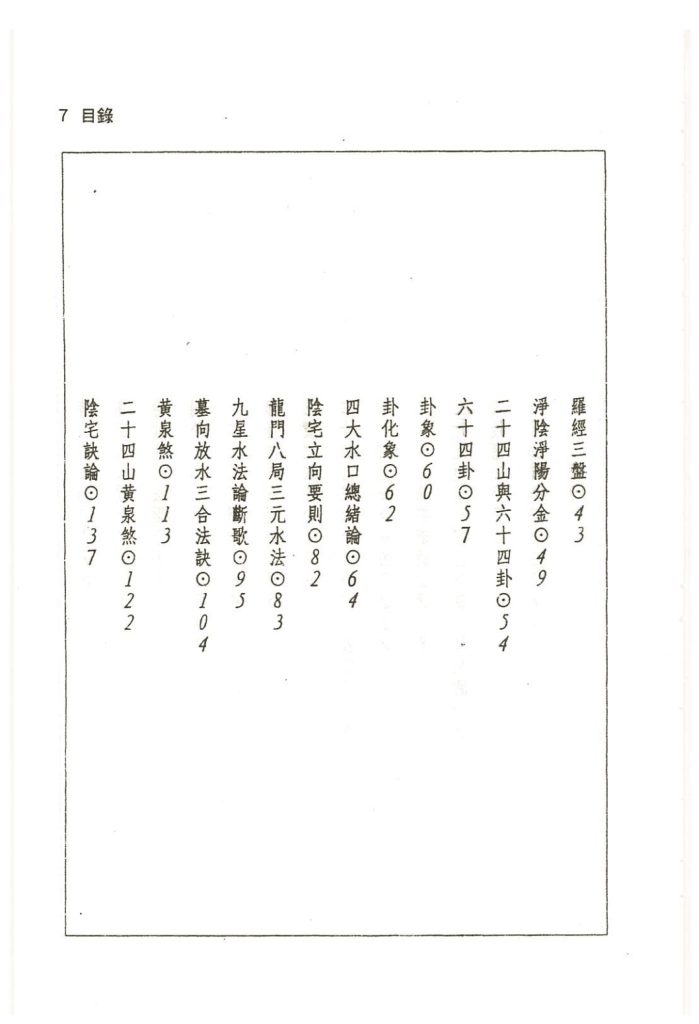 7 目錄
羅經三盤⊙43
淨陰淨陽分金⊙49
二十四山與六十四卦⊙54
六十四卦⊙57
卦象⊙60
卦化象⊙62
四大水口總緒論⊙64
陰宅立向要則⊙82
龍門八局三元水法⊙83
九星水法論斷歌⊙95
墓向放水三合法訣⊙104
黃泉煞⊙113
二十四山黃泉煞⊙122
陰宅訣論⊙137